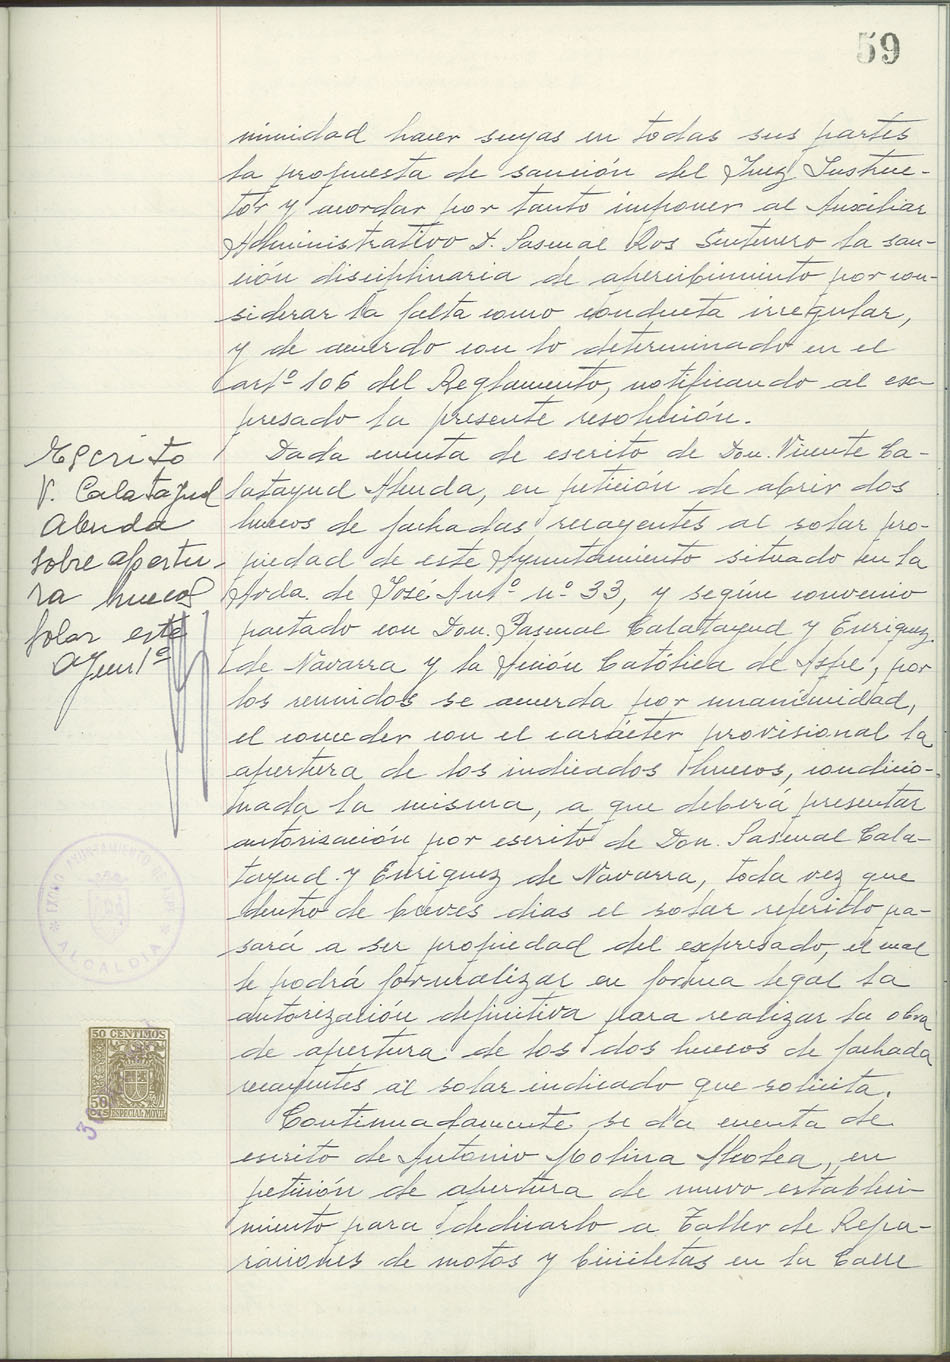 59
nimidad hacer suyas en todas sus partes
la propuesta de sanción del Juez Instruc-
tor y acordar por tanto imponer al Auxiliar
Administrativo D. Pascual Ros Sentenero la san-
ción disciplinaria de apercibimiento por con-
siderar la falta como conducta irregular,
y de acuerdo con lo determinado en el
artº 106 del Reglamento, notificando al ex-
presado la presente resolución.
Escrito
V. Calatayud
Abenda
sobre apertu-
ra huecos
solar este
Ayuntº
Dada cuenta de escrito de Don Vicente Ca-
latayud Abenda, en petición de abrir dos
huecos de fachadas recayentes al solar pro-
piedad de este Ayuntamiento situado en la
Avda. de José Antº nº 33, y según convenio
pactado con Don. Pascual Calatayud y Enriquez
de Navarra y la Acción Católica de Aspe, por
los reunidos se acuerda por unanimidad,
el conceder con el carácter provisional la
apertura de los indicados huecos, condicio-
nada la misma, a que deberá presentar
autorización por escrito de Don. Pascual Cala-
tayud y Enriquez de Navarra, toda vez que
dentro de breves dias el solar referido pa-
sará a ser propiedad del expresado, el cual
le podrá formalizar en forma legal la
autorización definitiva para realizar la obra
de apertura de los dos huecos de fachada
recayentes al solar indicado que solicita.
Continuadamente se da cuenta de
escrito de Antonio Molina Alcolea, en
petición de apertura de nuevo estableci-
miento para dedicarlo a Taller de Repa-
raciones de motos y bicicletas en la Calle
EXCMO. AYUNTAMIENTO DE ASPE
* ALCALDIA *
50 CENTIMOS
50
CTS ESPECIAL MOVIL